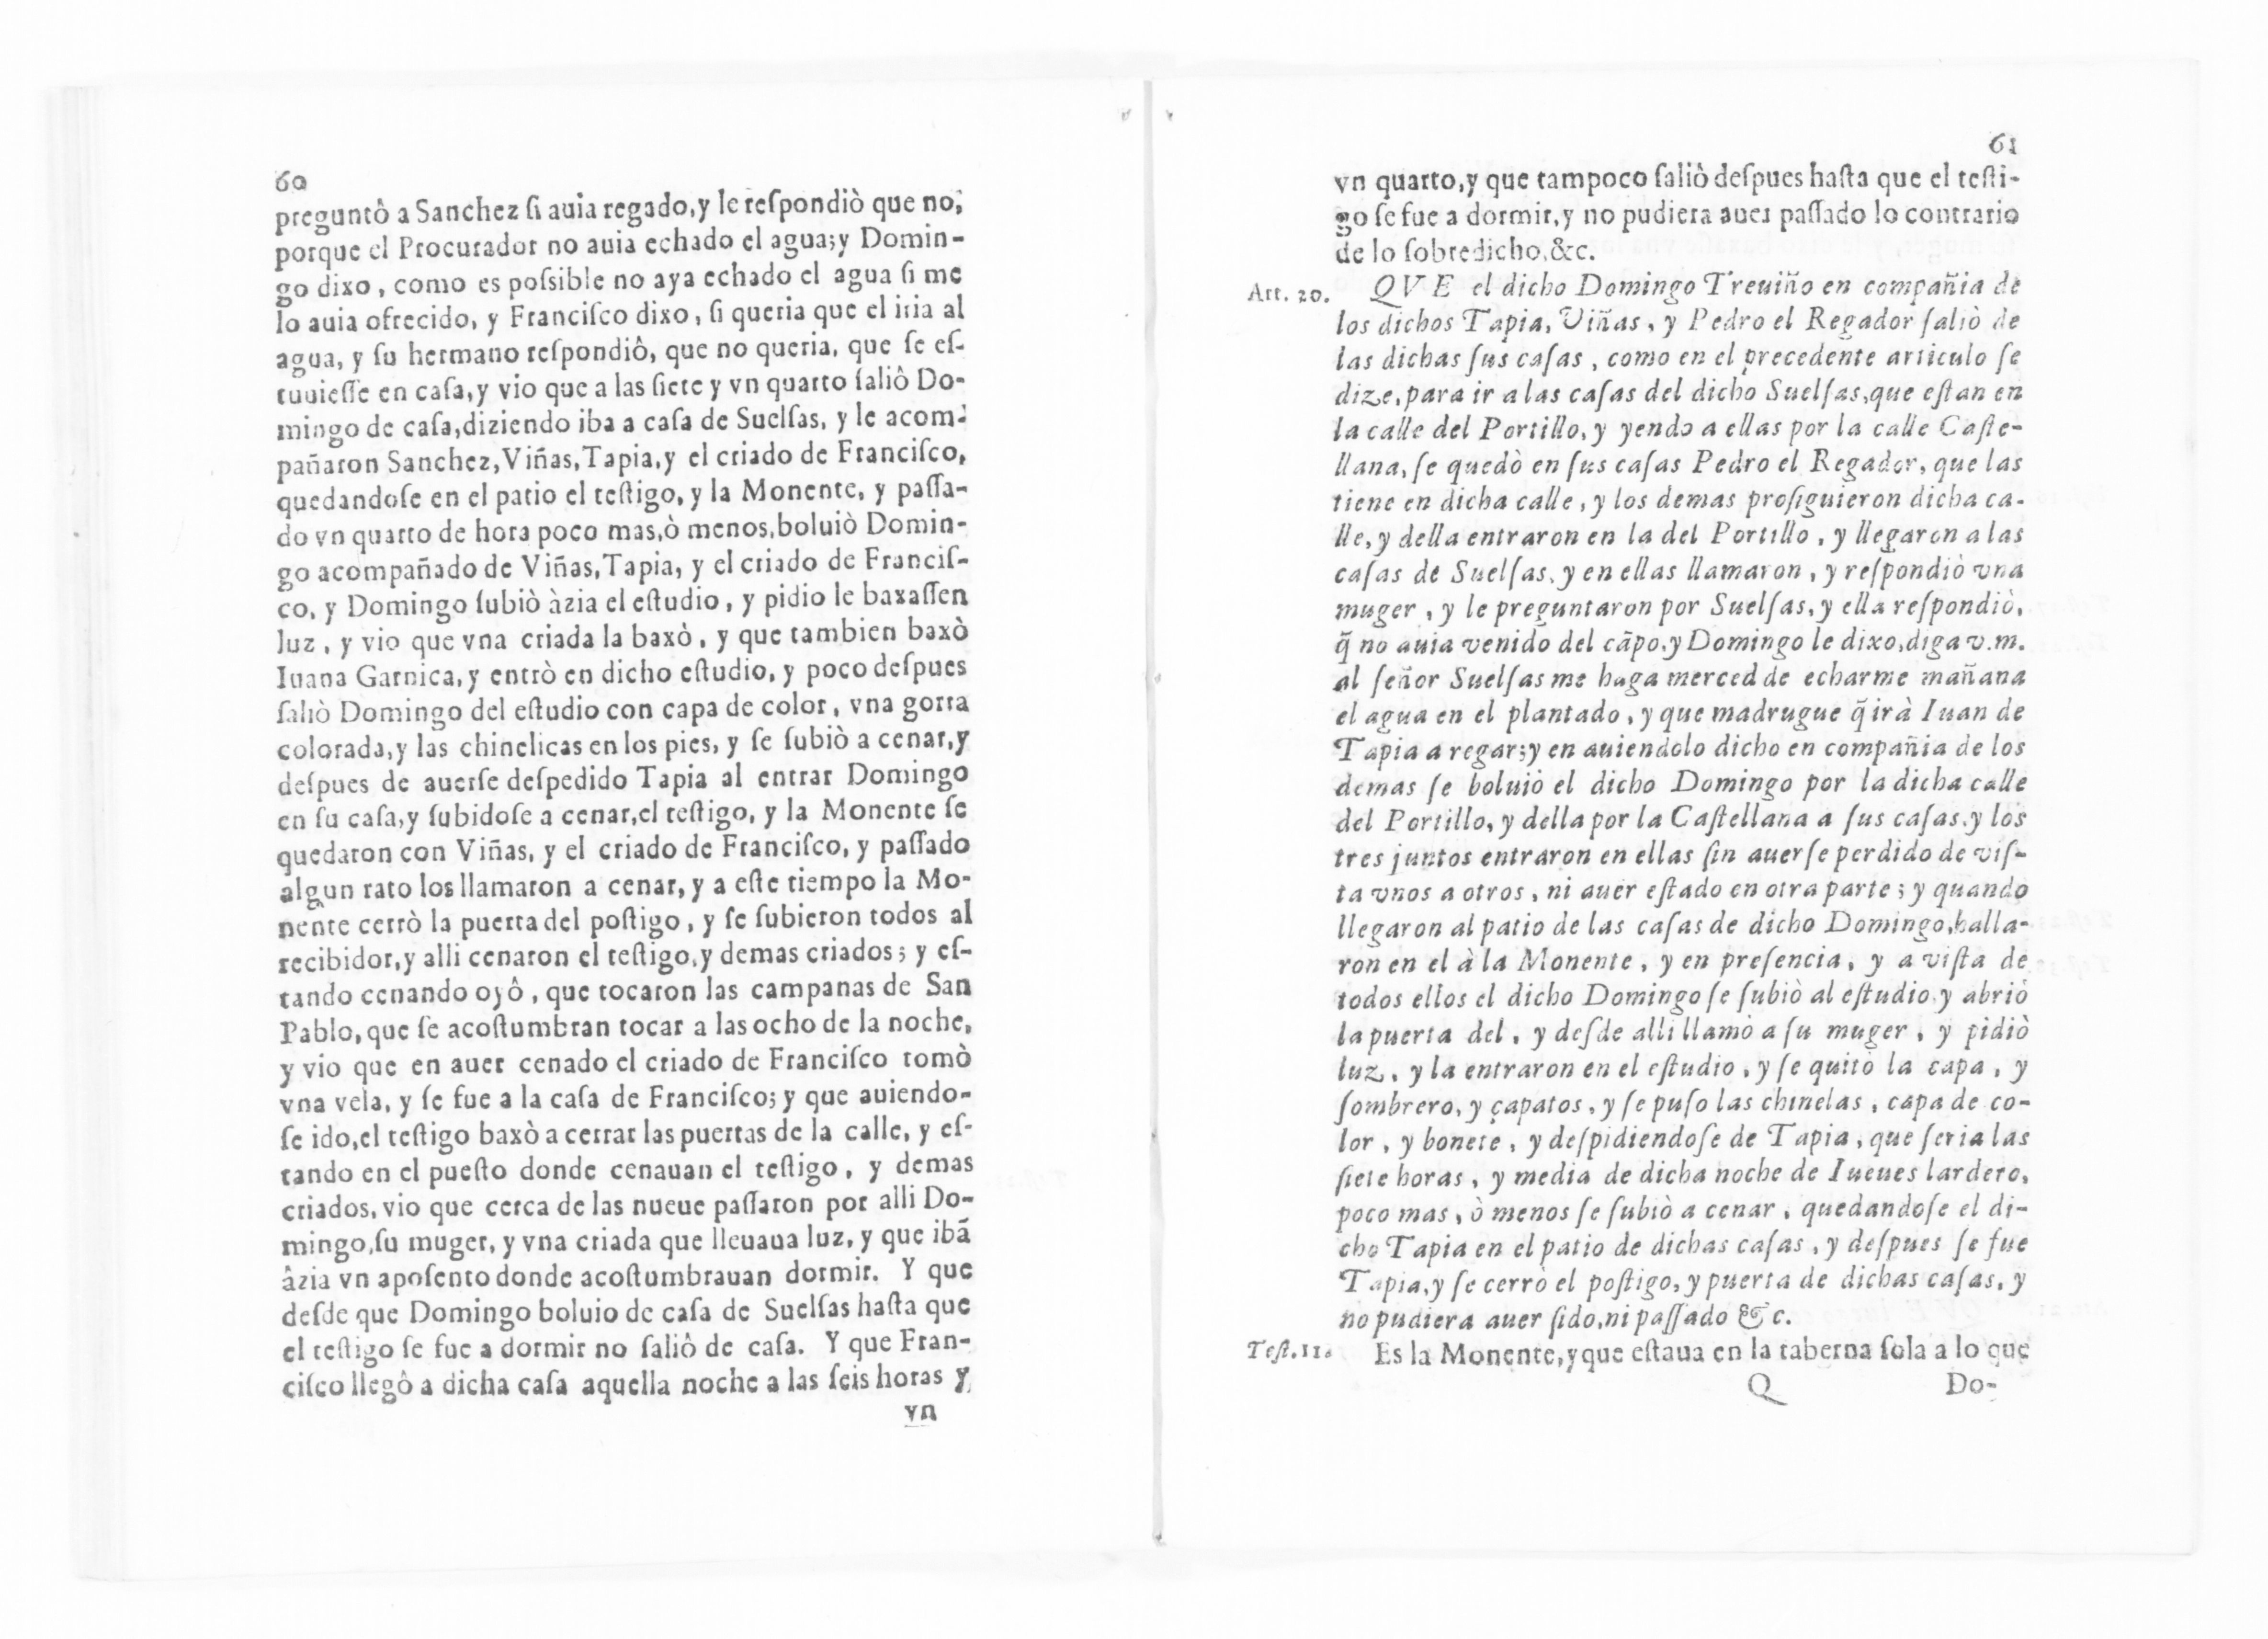 60
preguntô a Sanchez ſi auia regado,y le reſpondiò que no,
porque el Procurador no auia echado el agua;y Domin-
go dixo, como es poſsible no aya echado el agua ſi me
lo auia ofrecido, y Franciſco dixo, ſi queria que el iria al
agua, y ſu hermano reſpondiô, que no queria, que ſe eſ-
tuuieſſe en caſa,y vio que a las ſiete y vn quarto ſaliô Do-
mingo de caſa,diziendo iba a caſa de Suelſas, y le acom-
pañaron Sanchez,Viñas,Tapia,y el criado de Franciſco,
quedandoſe en el patio el teſtigo, y la Monente, y paſſa-
do vn quarto de hora poco mas,ò menos,boluiò Domin-
go acompañado de Viñas,Tapia, y el criado de Franciſ-
co, y Domingo ſubiò àzia el eſtudio, y pidio le baxaſſen
luz, y vio que vna criada la baxò, y que tambien baxò
Iuana Garnica,y entrò en dicho eſtudio, y poco deſpues
ſaliò Domingo del eſtudio con capa de color, vna gorra
colorada,y las chinelicas en los pies, y ſe ſubiò a cenar,y
deſpues de auerſe deſpedido Tapia al entrar Domingo
en ſu caſa,y ſubidoſe a cenar,el teſtigo, y la Monente ſe
quedaron con Viñas, y el criado de Franciſco, y paſſado
algun rato los llamaron a cenar, y a eſte tiempo la Mo-
nente cerrò la puerta del poſtigo, y ſe ſubieron todos al
recibidor,y alli cenaron el teſtigo,y demas criados; y eſ-
tando cenando oyô, que tocaron las campanas de San
Pablo, que ſe acoſtumbran tocar a las ocho de la noche,
y vio que en auer cenado el criado de Franciſco tomò
vna vela, y ſe fue a la caſa de Franciſco; y que auiendo-
ſe ido,el teſtigo baxò a cerrar las puertas de la calle, y eſ-
tando en el pueſto donde cenauan el teſtigo, y demas
criados, vio que cerca de las nueue paſſaron por alli Do-
mingo,ſu muger, y vna criada que lleuaua luz, y que ibã
âzia vn apoſento donde acoſtumbrauan dormir. Y que
deſde que Domingo boluio de caſa de Suelſas haſta que
el teſtigo ſe fue a dormir no ſaliô de caſa. Y que Fran-
ciſco llegô a dicha caſa aquella noche a las ſeis horas y
vn
61
vn quarto,y que tampoco ſaliò deſpues haſta que el teſti-
go ſe fue a dormir,y no pudiera auer paſſado lo contrario
de lo ſobredicho,&c.
Art. 20. QVE el dicho Domingo Treuiño en compañia de
los dichos Tapia, Viñas, y Pedro el Regador ſaliò de
las dichas ſus caſas, como en el precedente articulo ſe
dize,para ir a las caſas del dicho Suelſas,que eſtan en
la calle del Portillo, y yendo a ellas por la calle Caſte-
llana, ſe quedò en ſus caſas Pedro el Regador, que las
tiene en dicha calle, y los demas proſiguieron dicha ca-
lle, y della entraron en la del Portillo, y llegaron a las
caſas de Suelſas, y en ellas llamaron, y reſpondiò vna
muger, y le preguntaron por Suelſas, y ella reſpondiò,
q̃ no auia venido del cãpo,y Domingo le dixo,diga v.m.
al ſeñor Suelſas me haga merced de echarme mañana
el agua en el plantado, y que madrugue q̃ irà Iuan de
Tapia a regar;y en auiendolo dicho en compañia de los
demas ſe boluiò el dicho Domingo por la dicha calle
del Portillo, y della por la Caſtellana a ſus caſas,y los
tres juntos entraron en ellas ſin auerſe perdido de viſ-
ta vnos a otros, ni auer eſtado en otra parte; y quando
llegaron al patio de las caſas de dicho Domingo,halla-
ron en el à la Monente, y en preſencia, y a viſta de
todos ellos el dicho Domingo ſe ſubiò al eſtudio,y abriò
la puerta del, y deſde alli llamò a ſu muger, y pidiò
luz, y la entraron en el eſtudio, y ſe quitò la capa, y
ſombrero, y çapatos, y ſe puſo las chinelas, capa de co-
lor, y bonete, y deſpidiendoſe de Tapia, que ſeria las
ſiete horas, y media de dicha noche de Iueues lardero,
poco mas, ò menos ſe ſubiò a cenar, quedandoſe el di-
cho Tapia en el patio de dichas caſas, y deſpues ſe fue
Tapia,y ſe cerrò el poſtigo, y puerta de dichas caſas, y
no pudiera auer ſido,ni paſſado &c.
Teſt.11. Es la Monente,y que eſtaua en la taberna ſola a lo que
Q Do-